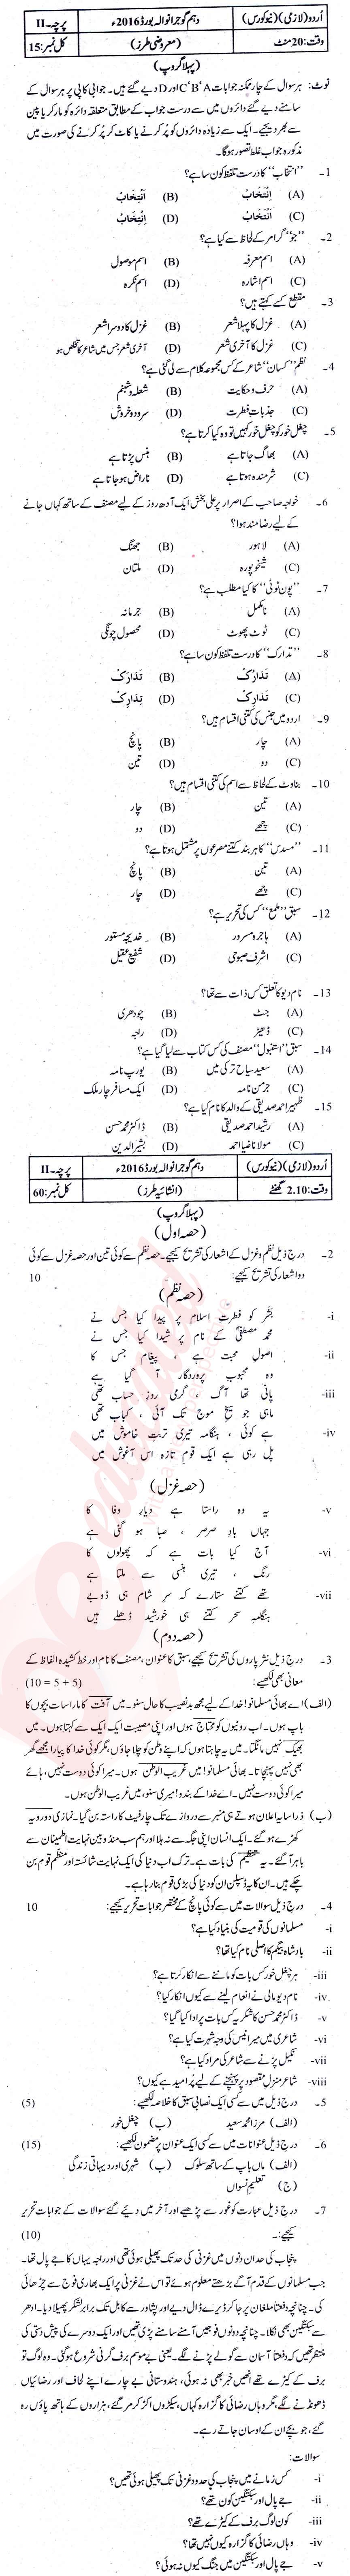 اُردو (لازمی) (نیو کورس) دہم گوجرانوالہ بورڈ 2016ء پرچہ-II
وقت:20 منٹ (معروضی طرز) کل نمبر:15
(پہلا گروپ)
نوٹ: ہر سوال کے چار ممکنہ جوابات C'B'A اور D دیے گئے ہیں۔ جوابی کاپی پر ہر سوال کے
سامنے دیے گئے دائروں میں سے درست جواب کے مطابق متعلقہ دائرہ کو مارکر یا پین
سے بھر دیجیے۔ ایک سے زیادہ دائروں کو پُر کرنے یا کاٹ کر پُر کرنے کی صورت میں
مذکورہ جواب غلط تصور ہوگا۔
1- "انتخاب" کا درست تلفظ کون سا ہے؟
(A) اِنْتَخَابْ (B) اَنْتِخَابْ
(C) اَنْتَخَابْ (D) اِنْتِخَابْ
2- "جو" گرامر کے لحاظ سے کیا ہے؟
(A) اسم معرفہ (B) اسم موصول
(C) اسم اشارہ (D) اسم نکرہ
3- مقطع کسے کہتے ہیں؟
(A) غزل کا پہلا شعر (B) غزل کا دوسرا شعر
(C) غزل کا آخری شعر (D) آخری شعر جس میں شاعر کا تخلص ہو
4- نظم "کسان" شاعر کے کس مجموعہ کلام سے لی گئی ہے؟
(A) حرف و حکایت (B) شعلہ و شبنم
(C) جذبات فطرت (D) سرود و خروش
5- چغل خور کو چغل خور کہیں تو وہ کیا کرتا ہے؟
(A) بھاگ جاتا ہے (B) ہنس پڑتا ہے
(C) شرمندہ ہوتا ہے (D) ناراض ہو جاتا ہے
6- خواجہ صاحب کے اصرار پر علی بخش ایک آدھ روز کے لیے مصنف کے ساتھ کہاں جانے
کے لیے رضامند ہوا؟
(A) لاہور (B) جھنگ
(C) شیخوپورہ (D) ملتان
7- "پون ٹوٹی" کا کیا مطلب ہے؟
(A) نامکمل (B) جرمانہ
(C) ٹوٹ پھوٹ (D) محصول چونگی
8- "تدارک" کا درست تلفظ کون سا ہے؟
(A) تَدَارُکْ (B) تَدَارَکْ
(C) تَدَارِکْ (D) تِدَارِکْ
9- اردو میں جنس کی کتنی اقسام ہیں؟
(A) چار (B) پانچ
(C) دو (D) تین
10- بناوٹ کے لحاظ سے اسم کی کتنی اقسام ہیں؟
(A) تین (B) چار
(C) چھے (D) دو
11- "مسدس" کا ہر بند کتنے مصرعوں پر مشتمل ہوتا ہے؟
(A) تین (B) پانچ
(C) چھے (D) چار
12- سبق "ملمع" کس کی تحریر ہے؟
(A) ہاجرہ مسرور (B) خدیجہ مستور
(C) اشرف صبوحی (D) شفیع عقیل
13- نام دیو کا تعلق کس ذات سے تھا؟
(A) جٹ (B) چودھری
(C) ڈھیڑ (D) راجہ
14- سبق "استنبول" مصنف کی کس کتاب سے لیا گیا ہے؟
(A) سعید سیاح ترکی میں (B) یورپ نامہ
(C) جرمن نامہ (D) ایک مسافر چار ملک
15- ظہیر احمد صدیقی کے والد کا نام کیا ہے؟
(A) رشید احمد صدیقی (B) ڈاکٹر محمد حسن
(C) مولانا ضیا احمد (D) بشیر الدین
اُردو (لازمی) (نیو کورس) دہم گوجرانوالہ بورڈ 2016ء پرچہ-II
وقت:2.10 گھنٹے (انشائیہ طرز) کل نمبر:60
(پہلا گروپ)
(حصہ اول)
2- درج ذیل نظم و غزل کے اشعار کی تشریح کیجیے۔ حصہ نظم سے کوئی تین اور حصہ غزل سے کوئی
دو اشعار کی تشریح کیجیے: 10
(حصہ نظم)
i- بشر کو فطرتِ اسلام پر پیدا کیا جس نے
محمد مصطفٰیؐ کے نام پر شیدا کیا جس نے
ii- اصولِ محبت ہے پیغام جس کا
وہ محبوب پروردگار آ گیا ہے
iii- پانی تھا آگ، گرمیِ روزِ حساب تھی
ماہی جو سیخِ موج تک آئی، کباب تھی
iv- ہے کوئی، ہنگامہ تیری تربتِ خاموش میں
پل رہی ہے ایک قومِ تازہ اس آغوش میں
(حصہ غزل)
v- یہ وہ راستا ہے دیارِ وفا کا
جہاں بادِ صرصر، صبا ہو گئی ہے
vi- آج کیا بات ہے کہ پھولوں کا
رنگ، تیری ہنسی سے ملتا ہے
vii- تھے کتنے ستارے کہ سرِ شام ہی ڈوبے
ہنگامِ سحر کتنے ہی خورشید ڈھلے ہیں
(حصہ دوم)
3- درج ذیل نثر پاروں کی تشریح کیجیے، سبق کا عنوان، مصنف کا نام اور خط کشیدہ الفاظ کے
معانی بھی لکھیے: (10 = 5 + 5)
(الف) اے بھائی مسلمانو! خدا کے لیے مجھ بدنصیب کا حال سنو۔ میں آفت کا مارا سات بچوں کا
باپ ہوں۔ اب روٹیوں کو محتاج ہوں اور اپنی مصیبت ایک ایک سے کہتا ہوں۔ میں
بھیک نہیں مانگتا۔ میں یہ چاہتا ہوں کہ اپنے وطن کو چلا جاؤں، مگر کوئی خدا کا پیارا مجھے گھر
بھی نہیں پہنچاتا۔ بھائی مسلمانو! میں غریب الوطن ہوں۔ میرا کوئی دوست نہیں، ہائے
میرا کوئی دوست نہیں۔ اے خدا کے بندو! میری سنو، میں غریب الوطن ہوں۔
(ب) ذرا سا یہ اعلان ہوتے ہی منبر سے دروازے تک چار فیٹ کا راستہ بن گیا۔ نمازی دورویہ
کھڑے ہو گئے۔ ایک انسان اپنی جگہ سے نہ ہلا اور ہم سب منٹ دو میں نہایت اطمینان سے
باہر آ گئے۔ یہ تنظیم کی بات ہے۔ ترک اب دنیا کی ایک نہایت شائستہ اور منظم قوم بن
چکے ہیں۔ ان کا یہ ڈسپلن ان کو دنیا کی بڑی قوم بنا رہا ہے۔
4- درج ذیل سوالات میں سے کوئی پانچ کے مختصر جوابات تحریر کیجیے: 10
i- مسلمانوں کی قومیت کی بنیاد کیا ہے؟
ii- بادشاہ بیگم کا اصلی نام کیا تھا؟
iii- ہر چغل خور کس بات کو ماننے سے انکار کرتا ہے؟
iv- نام دیو مالی نے انعام لینے سے کیوں انکار کیا؟
v- ڈاکٹر محمد حسن کا شکریہ کس بات پر ادا کیا گیا؟
vi- شاعری میں میر انیس کی وجہ شہرت کیا ہے؟
vii- نکیل پڑنے سے شاعر کی مراد کیا ہے؟
viii- شاعر منزلِ مقصود پر پہنچنے کے لیے پُر امید ہے کیوں؟
5- درج ذیل میں سے کسی ایک نصابی سبق کا خلاصہ لکھیے: (5)
(الف) مرزا محمد سعید (ب) چغل خور
6- درج ذیل عنوانات میں سے کسی ایک عنوان پر مضمون لکھیے: (15)
(الف) ماں باپ کے ساتھ سلوک (ب) شہری اور دیہاتی زندگی
(ج) تعلیمِ نسواں
7- درج ذیل عبارت کو غور سے پڑھیے اور آخر میں دیے گئے سوالات کے جوابات تحریر
کیجیے:- (10)
پنجاب کی حد ان دنوں میں غزنی کی حد تک پھیلی ہوئی تھی اور راجہ یہاں کا جے پال تھا۔
جب مسلمانوں کے قدم آگے بڑھتے معلوم ہوئے تو اس نے غزنی پر ایک بھاری فوج سے چڑھائی
کی۔ چنانچہ دفعتاً ملغان پر جا کر ڈیرے ڈال دیے اور پشاور سے کابل تک برابر لشکر پھیلا دیا۔ ادھر
سے سبکتگین بھی نکلا۔ چنانچہ دونوں فوجیں آمنے سامنے پڑی تھیں اور ایک دوسرے کی پیش دستی کی
منتظر تھیں کہ دفعتاً آسمان سے گولے پڑنے لگے۔ یعنی بے موسم برف گرنی شروع ہو گئی۔ وہ لوگ تو
برف کے کیڑے تھے انھیں خبر بھی نہ ہوئی، ہندوستانی بے چارے اپنے لحاف اور رضائیاں
ڈھونڈنے لگے، مگر وہاں رضائی کا گزارہ کہاں، سیکڑوں اکڑ کر مر گئے، ہزاروں کے ہاتھ پاؤں رہ
گئے، جو بچے ان کے اوسان جاتے رہے۔
سوالات:
i- کس زمانے میں پنجاب کی حدود غزنی تک پھیلی ہوئی تھیں؟
ii- جے پال اور سبکتگین کون تھے؟
iii- کون لوگ برف کے کیڑے تھے؟
iv- وہاں رضائی کا گزارہ کیوں نہیں تھا؟
v- جے پال اور سبکتگین میں جنگ کیوں نہ ہوئی؟